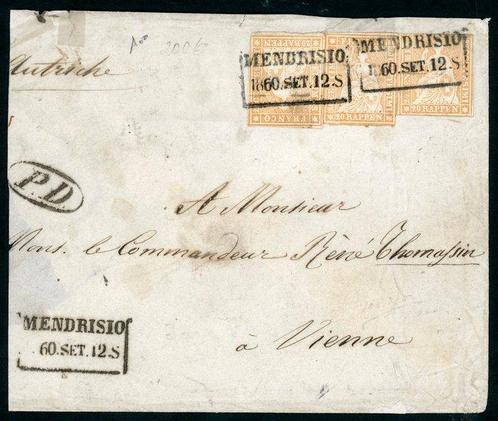 MENDRISIO
1860.SET.12.S
MENDRISIO
1860.SET.12.S
FRANCO
20 RAPPEN
20 RAPPEN
Autriche
P.D
A Monsieur
Mons. le Commandeur René Thomassin
à Vienne
MENDRISIO
60.SET.12.S